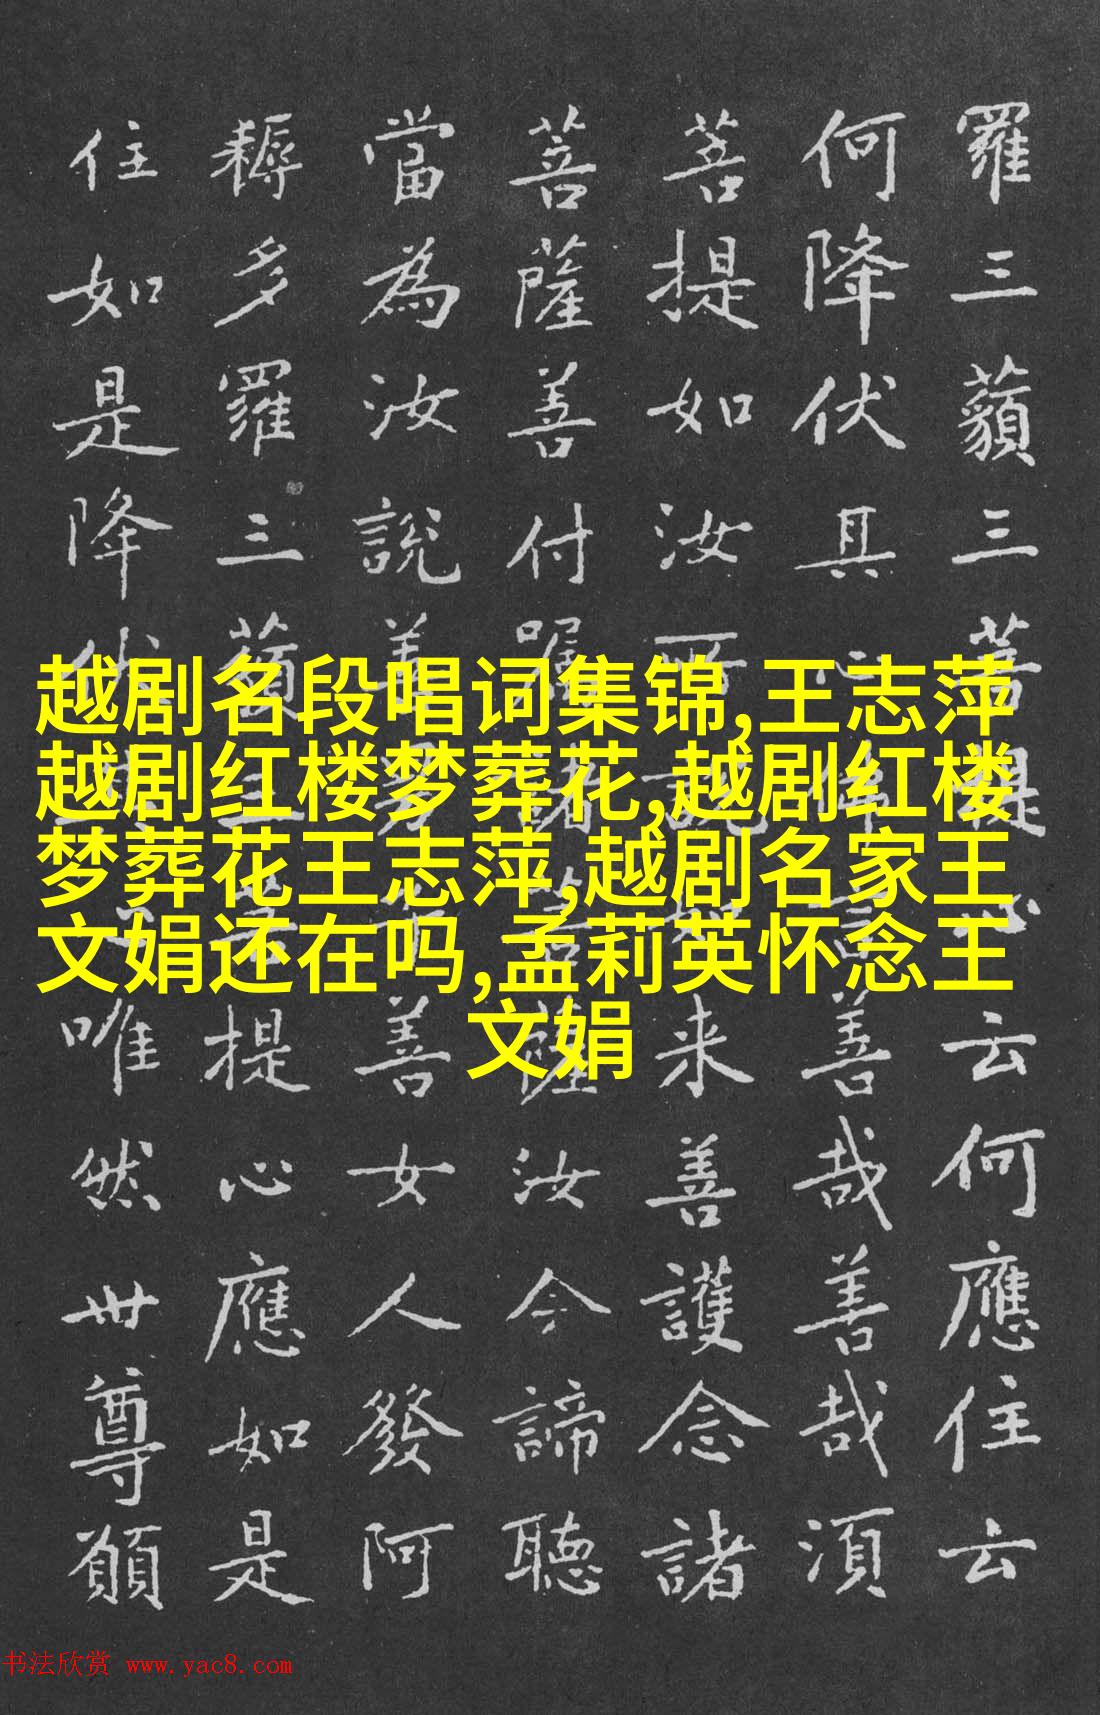 越剧名段唱词集锦,王志萍
越剧红楼梦葬花,越剧红楼
梦葬花王志萍,越剧名家王
文娟还在吗,孟莉英怀念王
文娟
羅三藐三菩提心云何應住云
何降伏其善哉善哉須
菩提如汝所說如来善護念諸
菩薩善付囑諸菩薩汝今諦聽
當為汝說善男善女人發阿
耨多羅三藐三提心應如是
住如是降伏唯然世尊願
书法欣赏 www.yac8.com